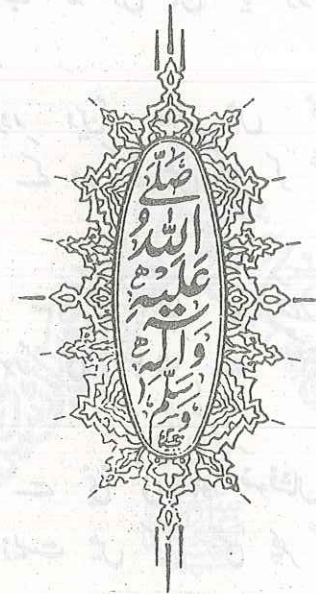 صَلَّى
اللهُ
عَلَيْهِ
وَآلِهٖ
وَسَلَّمَ